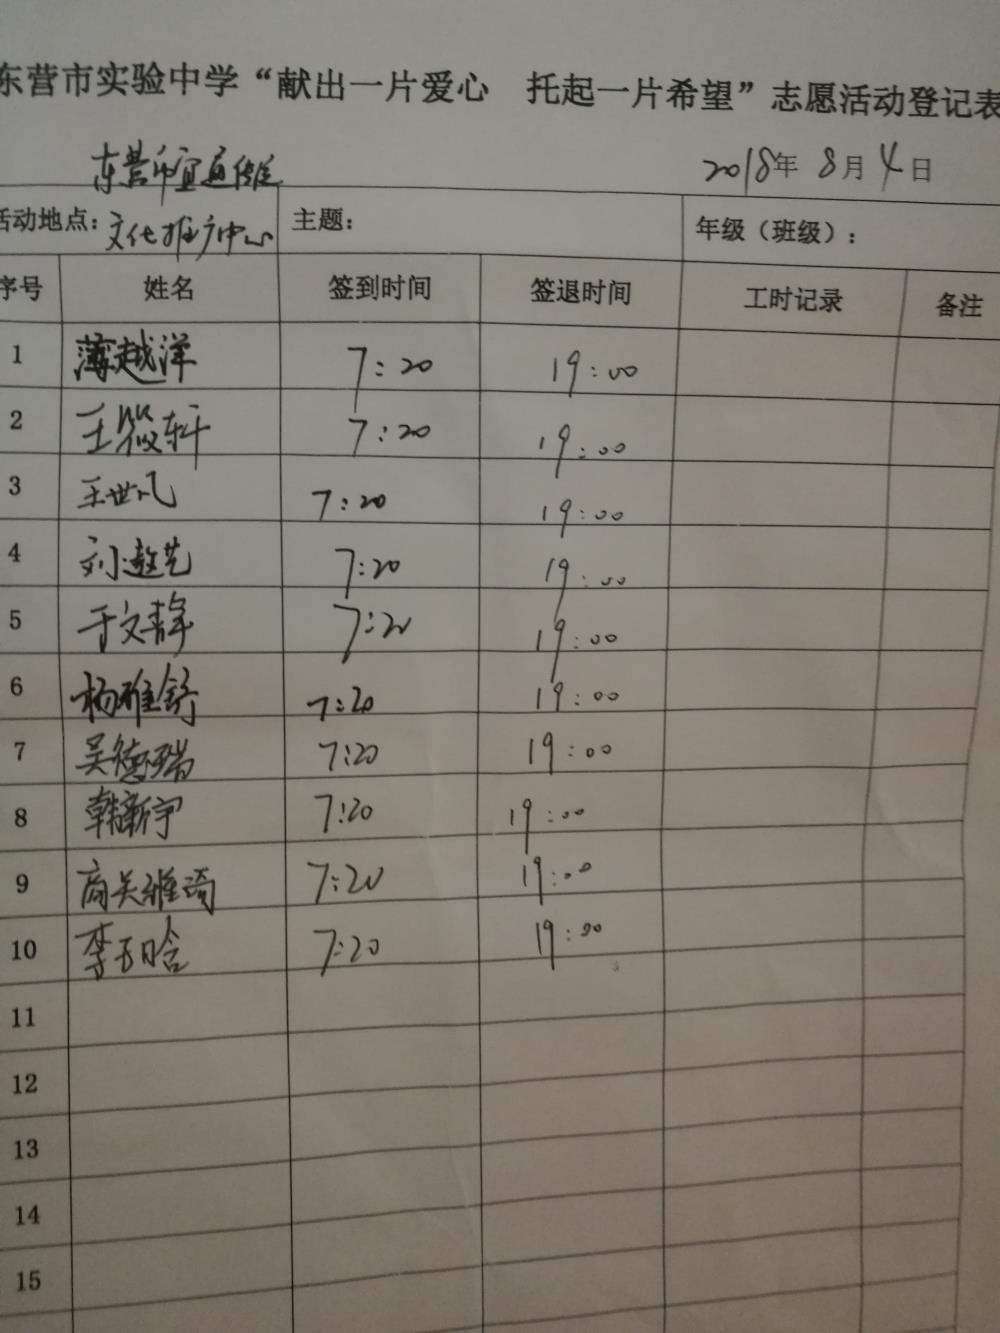 东营市实验中学“献出一片爱心 托起一片希望”志愿活动登记表
2018年8月4日
活动地点：东营市宜通传统文化推广中心 主题： 年级（班级）：
序号 姓名 签到时间 签退时间 工时记录 备注
1 薄越洋 7:20 19:00
2 王筱轩 7:20 19:00
3 王世凡 7:20 19:00
4 刘遨艺 7:20 19:00
5 于文静 7:20 19:00
6 杨雅舒 7:20 19:00
7 吴德瑞 7:20 19:00
8 韩新宇 7:20 19:00
9 商吴雅琦 7:20 19:00
10 李 晗 7:20 19:00
11
12
13
14
15